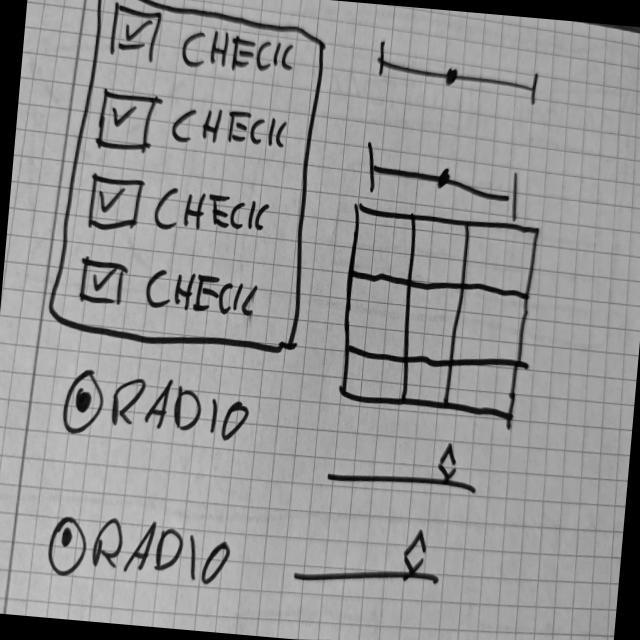 CHECK
CHECK
CHECK
CHECK
RADIO
RADIO